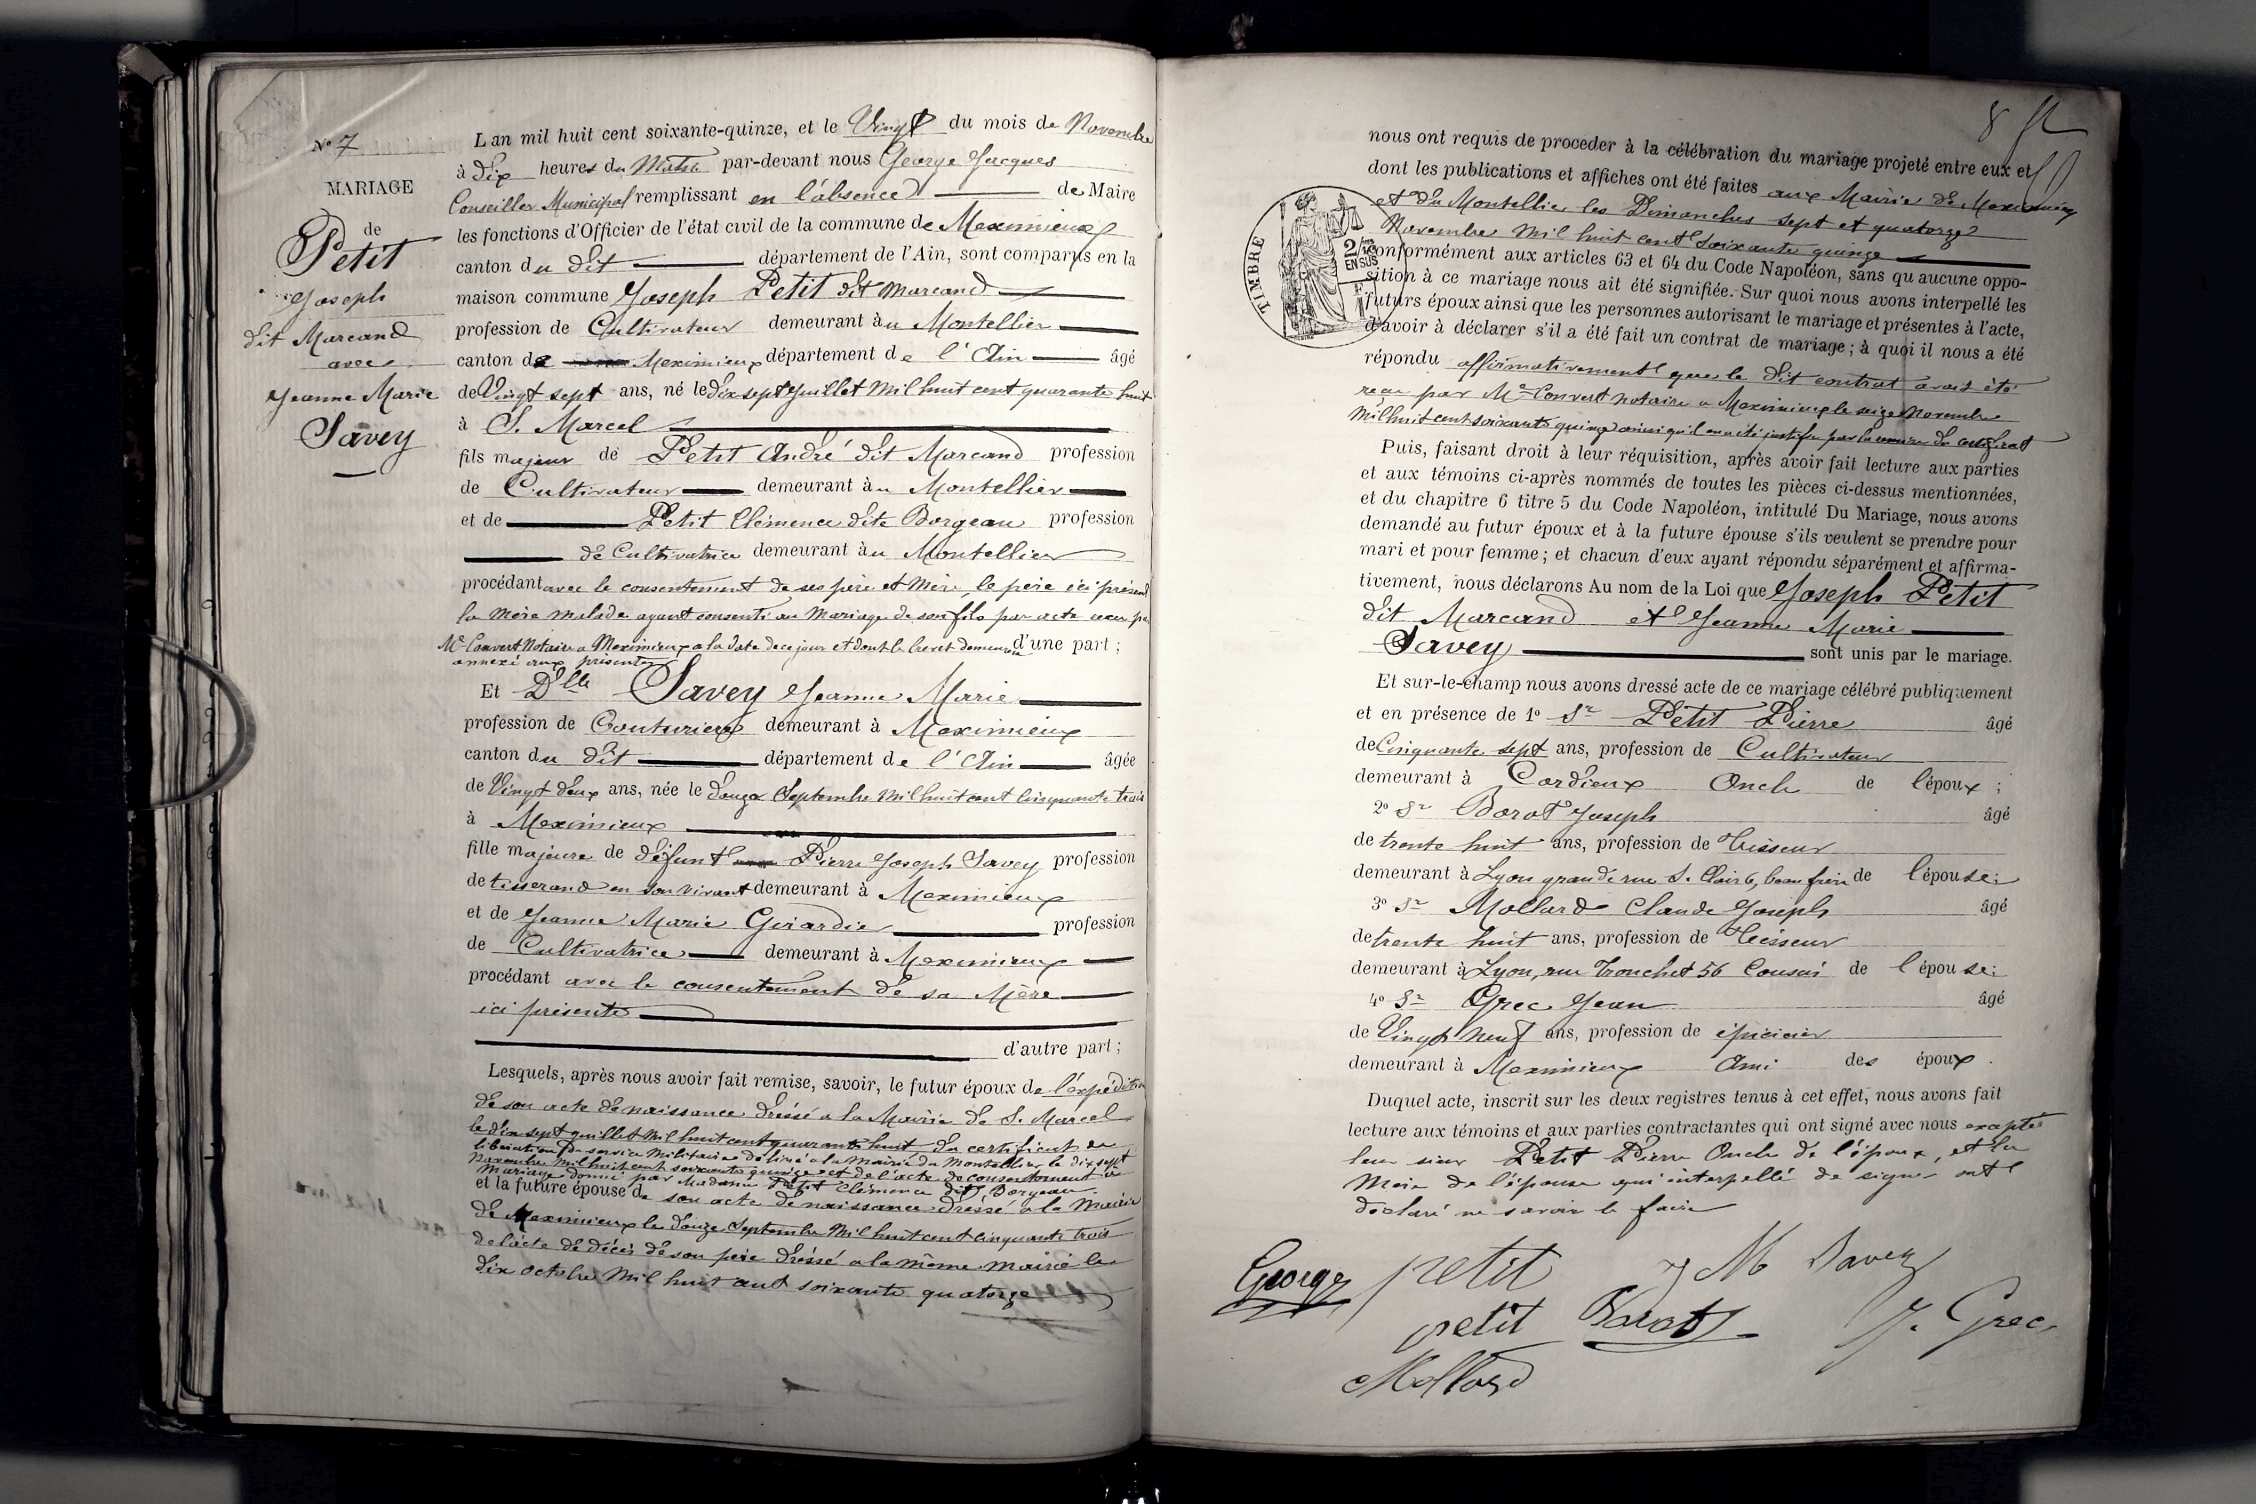 N° 7
MARIAGE
de
Petit
Joseph
dit Marcand
avec
Jeanne Marie
Savey
L'an mil huit cent soixante-quinze, et le Vingt du mois de Novembre
à dix heures du Matin par-devant nous George Jacques
Conseiller Municipal remplissant en l'absence de Maire
les fonctions d'Officier de l'état civil de la commune de Meximieux
canton du dit département de l'Ain, sont comparus en la
maison commune Joseph Petit dit Marcand
profession de Cultivateur demeurant au Montellier
canton de Meximieux département de l'Ain âgé
de Vingt sept ans, né le dix sept Juillet Mil huit cent quarante huit
à S. Marcel
fils majeur de Petit André dit Marcand profession
de Cultivateur demeurant au Montellier
et de Petit Clémence dite Borgeau profession
de Cultivatrice demeurant au Montellier
procédant avec le consentement de ses père et Mère, le père ici présent
la Mère malade ayant consenti au Mariage de son fils par acte reçu
Me Convert Notaire a Meximieux a la date de ce jour et dont le brevet demeure d'une part ;
annexé aux présentes
Et Dlle Savey Jeanne Marie
profession de Couturière demeurant à Meximieux
canton du dit département de l'Ain âgée
de Vingt deux ans, née le douze Septembre Mil huit cent Cinquante trois
à Meximieux
fille majeure de défunt Pierre Joseph Savey profession
de tisserand en son vivant demeurant à Meximieux
et de Jeanne Marie Girardie profession
de Cultivatrice demeurant à Meximieux
procédant avec le consentement de sa Mère
ici présente
d'autre part ;
Lesquels, après nous avoir fait remise, savoir, le futur époux de l'expédition
de son acte de naissance dressé a la Mairie de S. Marcel
le dix sept Juillet Mil huit cent quarante huit du certificat de
libération du service Militaire délivré a la Mairie du Montellier le dix sept
Novembre Mil huit cent soixante quinze et de l'acte de consentement à
Mariage donné par Madame Petit Clémence dit Borgeau
et la future épouse de son acte de naissance dressé a la Mairie
de Meximieux le douze Septembre Mil huit cent Cinquante trois
de l'acte de décès de son père dressé a la même mairie le
dix octobre Mil huit cent soixante quatorze
8
nous ont requis de procéder à la célébration du mariage projeté entre eux et
dont les publications et affiches ont été faites aux Mairie de Meximieux
et du Montellier les Dimanches sept et quatorze
Novembre Mil huit cent Soixante quinze
TIMBRE
2/10mes EN SUS
conformément aux articles 63 et 64 du Code Napoléon, sans qu'aucune oppo-
sition à ce mariage nous ait été signifiée. Sur quoi nous avons interpellé les
futurs époux ainsi que les personnes autorisant le mariage et présentes à l'acte,
d'avoir à déclarer s'il a été fait un contrat de mariage ; à quoi il nous a été
répondu affirmativement que le dit contrat avait été
reçu par Me Convert notaire a Meximieux le seize Novembre
Mil huit cent soixante quinze ainsi qu'il en a été justifié par la remise du certificat
Puis, faisant droit à leur réquisition, après avoir fait lecture aux parties
et aux témoins ci-après nommés de toutes les pièces ci-dessus mentionnées,
et du chapitre 6 titre 5 du Code Napoléon, intitulé Du Mariage, nous avons
demandé au futur époux et à la future épouse s'ils veulent se prendre pour
mari et pour femme ; et chacun d'eux ayant répondu séparément et affirma-
tivement, nous déclarons Au nom de la Loi que Joseph Petit
dit Marcand et Jeanne Marie
Savey sont unis par le mariage.
Et sur-le-champ nous avons dressé acte de ce mariage célébré publiquement
et en présence de 1° Sr Petit Pierre âgé
de Cinquante sept ans, profession de Cultivateur
demeurant à Cordieux Oncle de l'époux ;
2° Sr Borot Joseph âgé
de trente huit ans, profession de Tisseur
demeurant à Lyon grande rue S. Clair 6, beau frère de l'épouse ;
3° Sr Mollard Claude Joseph âgé
de trente huit ans, profession de Tisseur
demeurant à Lyon, rue Tronchet 56 Cousin de l'épouse ;
4° Sr Grec Jean âgé
de Vingt Neuf ans, profession de épicier
demeurant à Meximieux Ami des époux.
Duquel acte, inscrit sur les deux registres tenus à cet effet, nous avons fait
lecture aux témoins et aux parties contractantes qui ont signé avec nous excepté
leur sieur Petit Pierre Oncle de l'époux, et la
Mère de l'épouse qui interpellé de signer ont
déclaré ne savoir le faire
George petit J M Savey
petit Borot J. Grec
Mollard